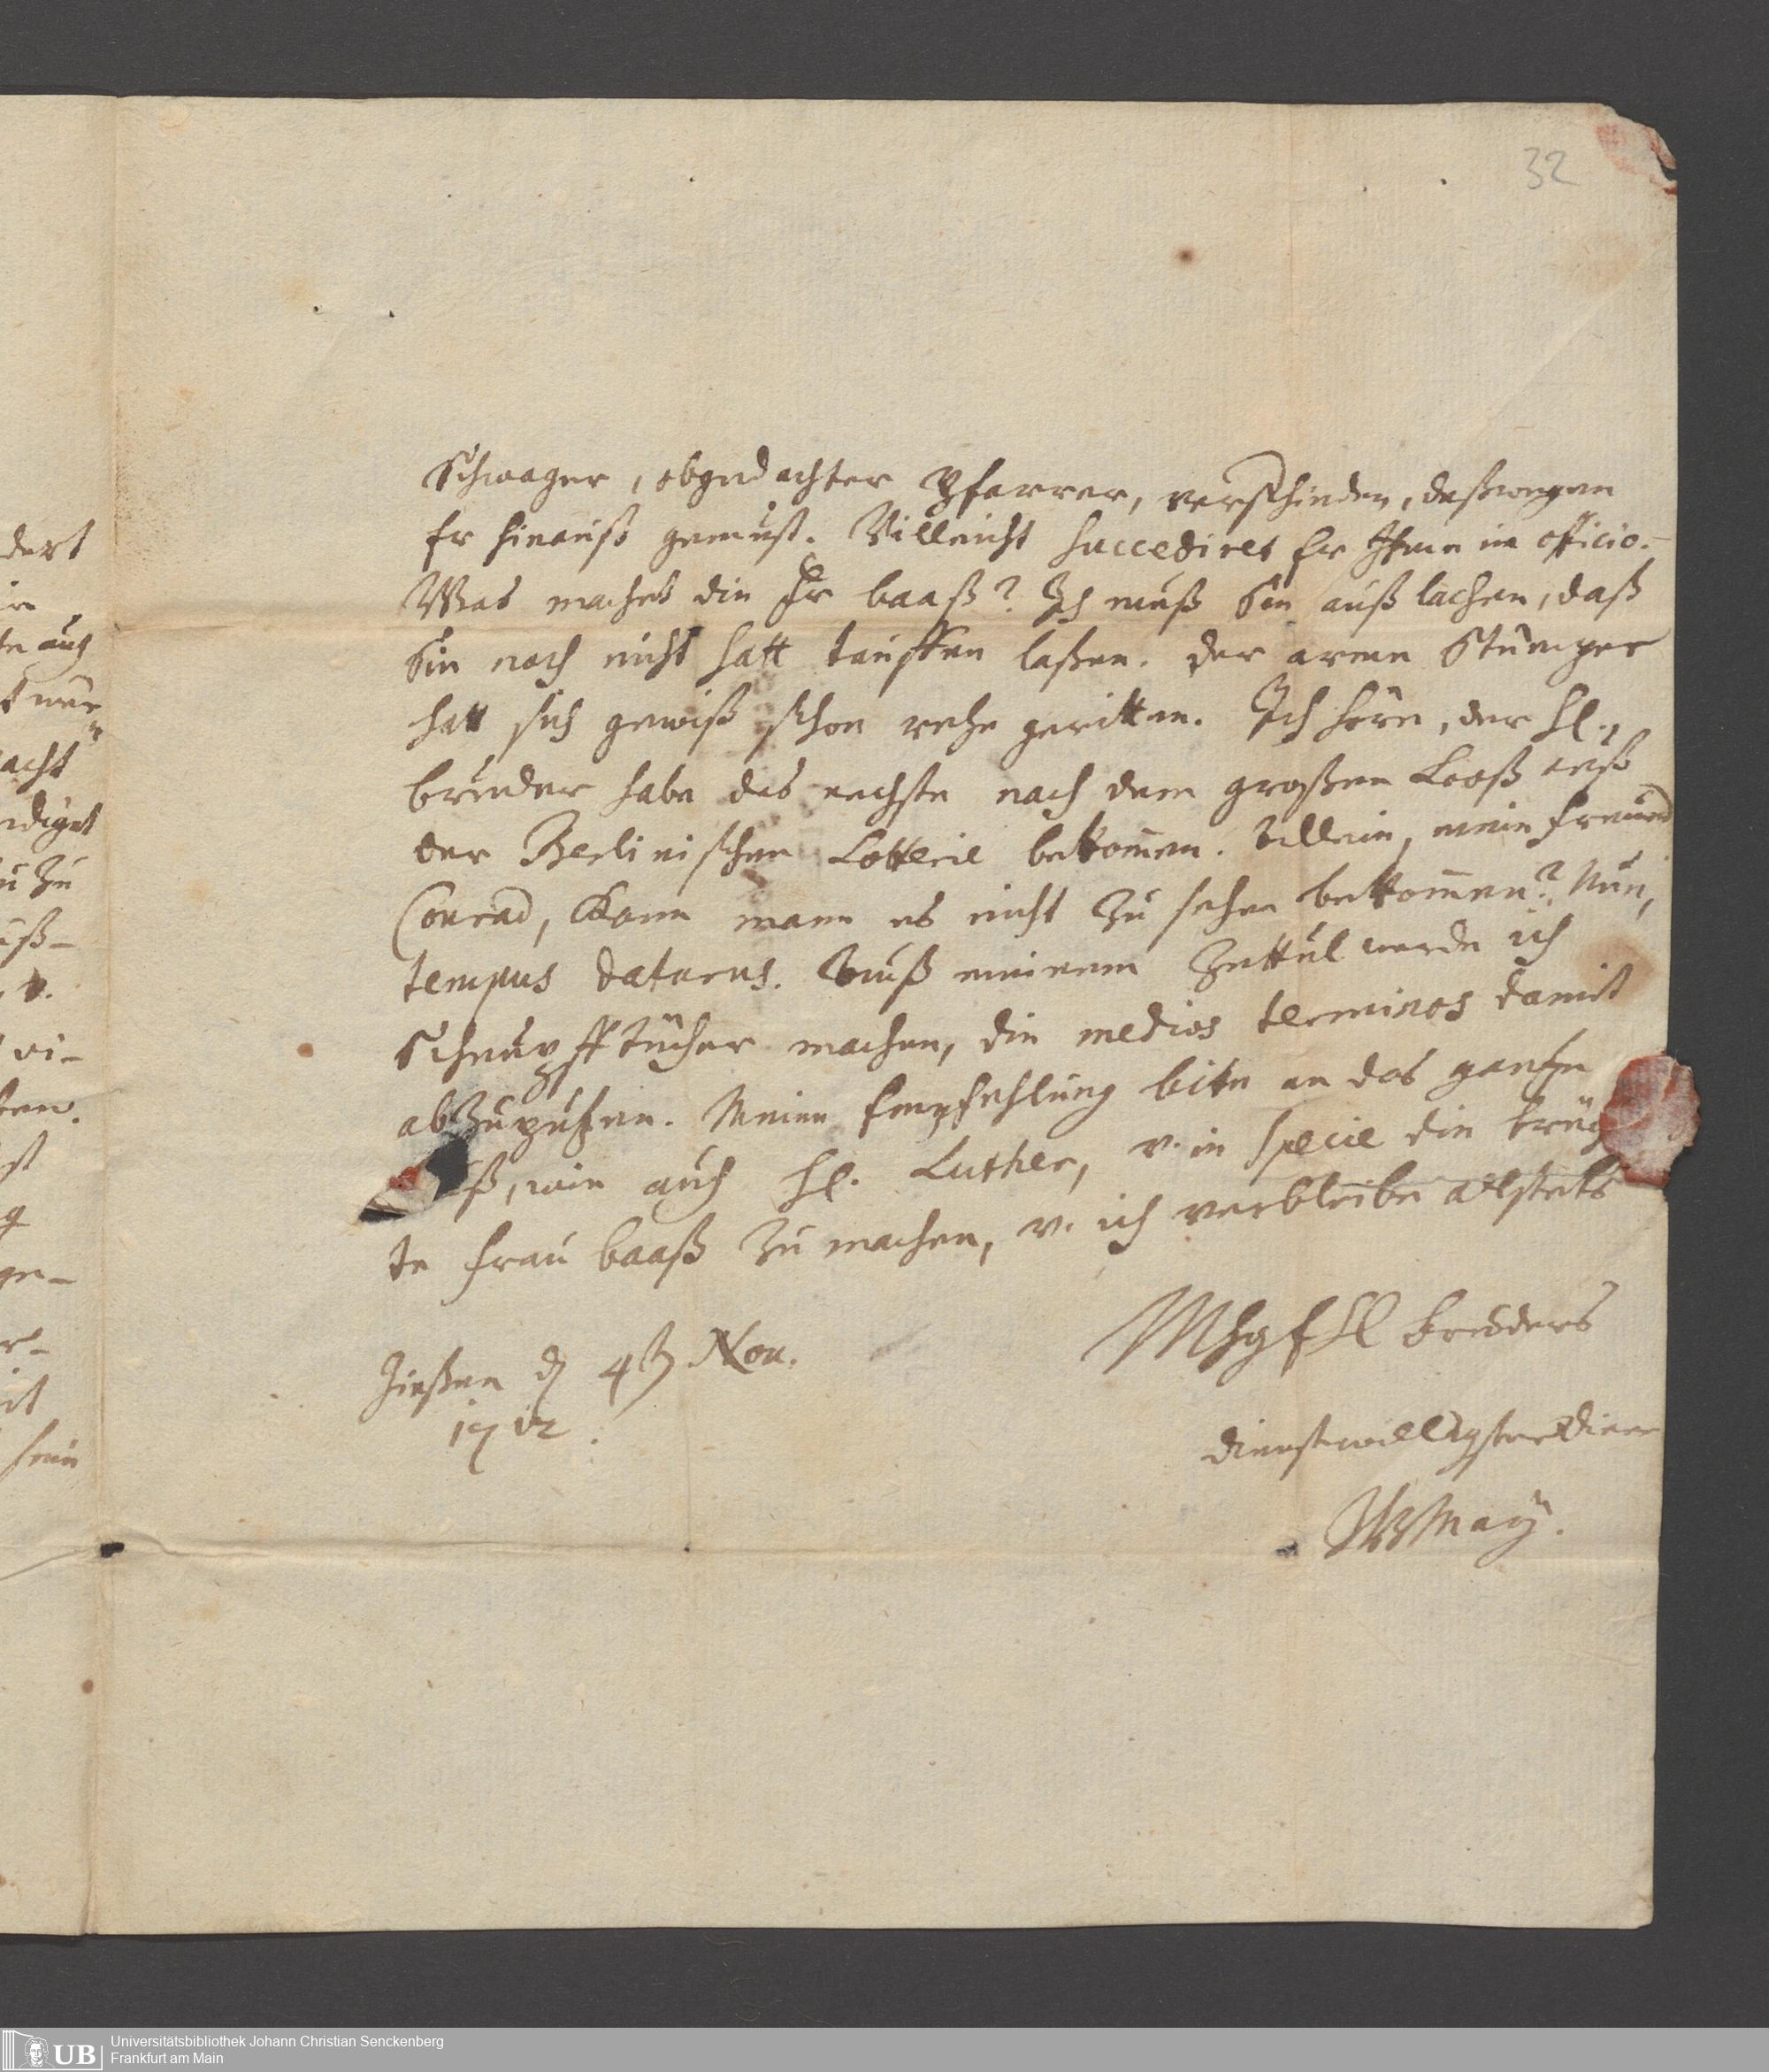 32
Schwager, obgedachter Pfarrer, verschieden, deßwegen
Er hinauß gemust. Villeicht succediret Er Ihme in officio.
Was machet die Fr baaß? Ich muß Sie auß lachen, daß
Sie noch nicht hatt tauffen laßen. Der arme Stümper
hatt sich gewiß schon rehe geritten. Ich höre, der Hl.
bruder habe das nechste nach dem großen Looß auß
der Berlinischen Lotterie bekommen. Allein, mein freund
Conrad, Kann mann es nicht zu sehen bekommen? Nun,
tempus dataras. Auß meinem Zettul werde ich
Schnupfftücher machen, die medios terminos damit
abzuputzen. Meine Empfehlung bitte an das gantze
uß, wie auch Hl. Luther, v. in specie die
te Frau baaß zu machen, v. ich verbleibe allstets
MhgfHl bruders
Gießen d 4t Nov.
1712.
dienstwilligster diener
May.
dert
te auch
acht
digt
zu
uß-
v.
vi-
ten.
st
ge-
it
sein
UB
Universitätsbibliothek Johann Christian Senckenberg
Frankfurt am Main